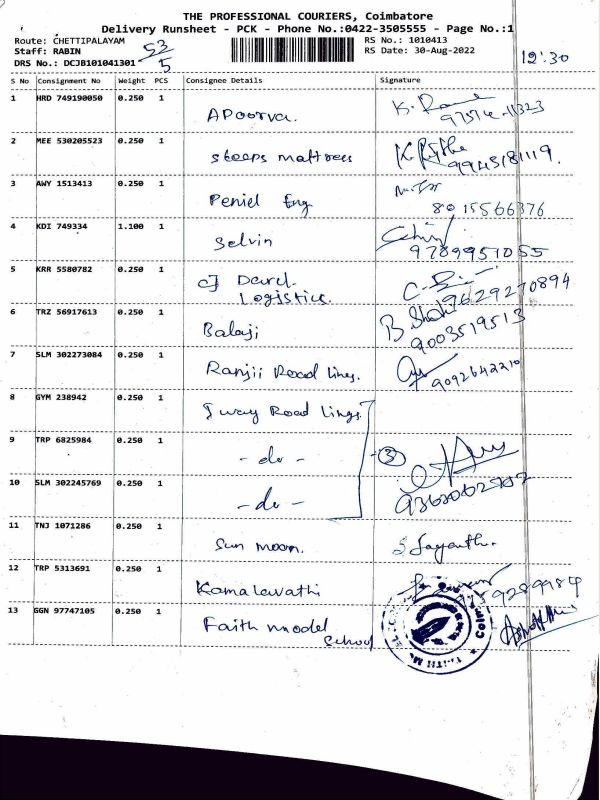 THE PROFESSIONAL COURIERS, Coimbatore
Delivery Runsheet - PCK - Phone No.:0422-3505555 - Page No.:1
Route: CHETTIPALAYAM
RS No.: 1010413
Staff: RABIN
RS Date: 30-Aug-2022
DRS No.: DCJB101041301
53/5
12:30
S No Consignment No Weight PCS Consignee Details Signature
1 HRD 749190050 0.250 1 Apoorva.
2 MEE 530205523 0.250 1 Sleeps mattress 9945181119.
3 AWY 1513413 0.250 1 Peniel Eng 8015566376
4 KDI 749334 1.100 1 Selvin 9789951055
5 KRR 5580782 0.250 1 CJ Logistics. 9629270894
6 TRZ 56917613 0.250 1 Balaji 9003519513
7 SLM 302273084 0.250 1 Ranjii Road lines. 9092642210
8 GYM 238942 0.250 1 Road Lings.
9 TRP 6825984 0.250 1 - do - 3
10 SLM 302245769 0.250 1 - do -
11 TNJ 1071286 0.250 1 Sun moon. S Jayanthi.
12 TRP 5313691 0.250 1 Kamalavathi
13 GGN 97747105 0.250 1 Faith model School